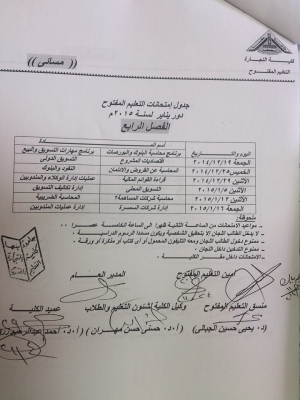 كلية التجارة
التعليم المفتوح
(( مسائى ))
جدول إمتحانات التعليم المفتوح
دور يناير لسنة ٢٠١٥م
الفصل الرابع
اليوم والتاريخ
برنامج محاسبة البنوك والبورصات
برنامج مهارات التسويق والبيع
الجمعة ٢٠١٤/١٢/١٩
اقتصاديات المشروع
التسويق الدولى
الخميس ٢٠١٤/١٢/٢٥
المحاسبة عن القروض والائتمان
النقود والبنوك
الأثنين ٢٠١٤/١٢/٢٩
قراءة القوائم المالية
عمليات إدارة الوكلاء والمندوبين
الأثنين ٢٠١٥/١/٥
التسويق المصرفى
إدارة تكاليف التسويق
الخميس ٢٠١٥/١/٨
محاسبة الشركات المساهمة
المحاسبة الضريبية
الجمعة ٢٠١٥/١/١٦
إدارة شركات السمسرة
إدارة عمليات المندوبين
ملحوظة:
- مواعيد الإمتحانات من الساعة الثانية ظهرا الى الساعة الخامسة عصرا
- لا يدخل الطالب اللجان الا بتحقيق الشخصية ويكون مسددا الرسوم الدراسية.
- ممنوع دخول الطالب اللجان ومعه التليفون المحمول أو أى كتاب أو مذكرة أو ورقة.
- ممنوع التدخين داخل اللجان.
- الامتحانات داخل مقر الكلية.
المدير العام
أمين التعليم المفتوح
منسق التعليم المفتوح
وكيل الكلية لشئون التعليم والطلاب
عميد الكلية
(د. يحيى حسين الجبالى)
(أ.د. حسنى حسن مهران)